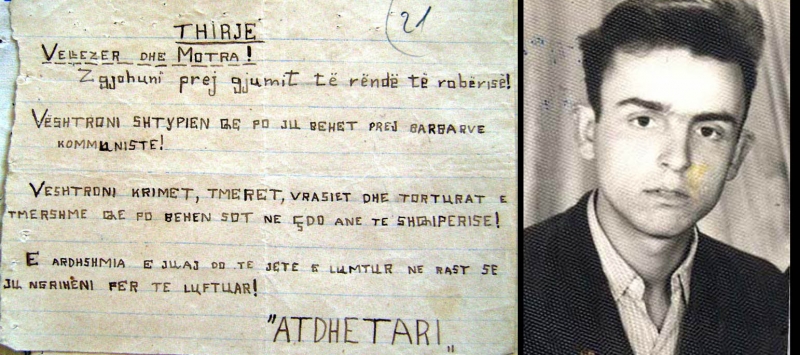 21
THIRJE
VELLEZER DHE MOTRA!
Zgjohuni prej gjumit të rëndë të robërisë!
VËSHTRONI SHTYPIEN QE PO JU BEHET PREJ BARBARVE
KOMMUNISTE!
VESHTRONI KRIMET, TMERET, VRASIET DHE TORTURAT E
TMERSHME QE PO BEHEN SOT NE ÇDO ANE TE SHQIPERISE!
E ARDHSHMIA E JUAJ DO TE JETE E LUMTUR NE RAST SE
JU NGRIHENI PER TE LUFTUAR!
"ATDHETARI"